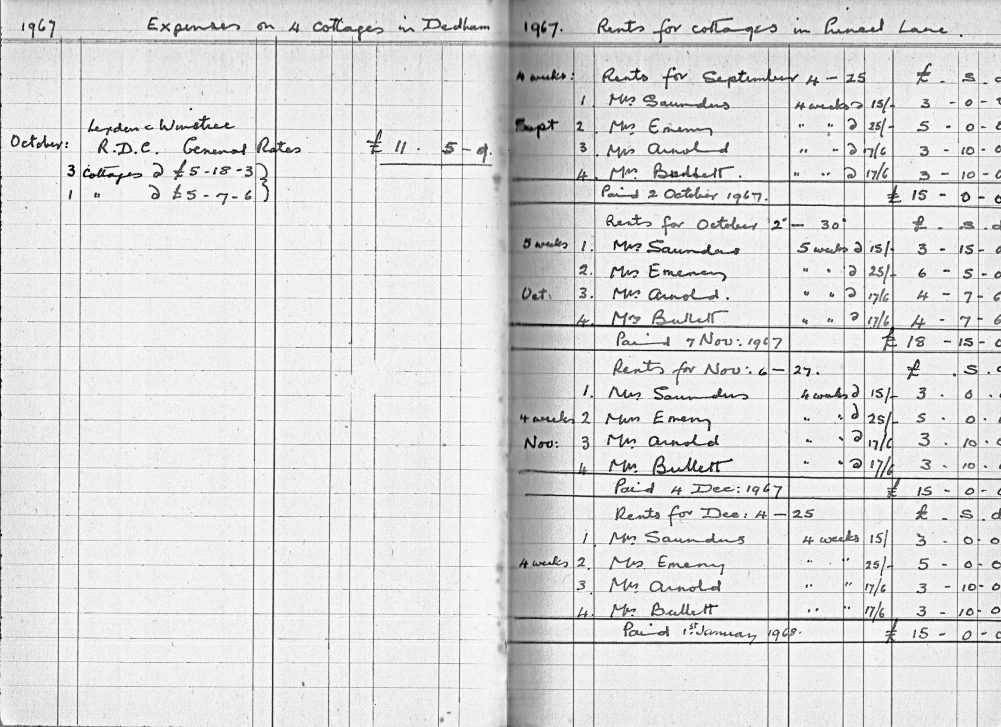 1967 Expenses on 4 cottages in Dedham
Lexden & Winstree
October: R.D.C. General Rates £ 11. 5 - 9.
3 cottages @ £5-18-3 }
1 " @ £5-7-6 }
1967. Rents for cottages in Lane.
4 weeks: Rents for September 4 - 25 £. S. d
1. Mrs Saunders 4 weeks @ 15/- 3 - 0 -
Sept 2 Mrs Emeny " " @ 25/- 5 - 0 - 0
3 Mrs Arnold " " @ 17/6 3 - 10 - 0
4. Mrs Bullett. " " @ 17/6 3 - 10 - 0
Paid 2 October 1967. £ 15 - 0 - 0
Rents for October 2 - 30 £. S. d
5 weeks 1. Mrs Saunders 5 weeks @ 15/- 3 - 15 - 0
2. Mrs Emeny " " @ 25/- 6 - 5 - 0
Oct: 3. Mrs Arnold. " " @ 17/6 4 - 7 - 6
4. Mrs Bullett " " @ 17/6 4 - 7 - 6
Paid 7 Nov: 1967 £ 18 - 15 - 0
Rents for Nov: 6 - 27. £ . S.
1. Mrs Saunders 4 weeks @ 15/- 3 . 0 .
4 weeks 2 Mrs Emeny " " @ 25/- 5 . 0 .
Nov: 3 Mrs Arnold " " @ 17/6 3 . 10 .
4 Mrs Bullett " " @ 17/6 3 . 10 .
Paid 4 Dec: 1967 £ 15 - 0 -
Rents for Dec: 4 - 25 £ . S . d
1 Mrs Saunders 4 weeks 15/ 3 - 0-0
4 weeks 2. Mrs Emeny " " 25/- 5 - 0-0
3. Mrs Arnold " " 17/6 3 - 10-0
4. Mrs Bullett " " 17/6 3 - 10-0
Paid 1st January 1968. £ 15 - 0 - 0